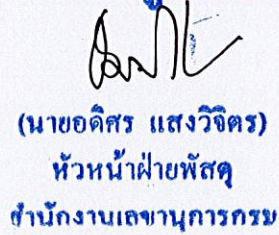 (นายอดิศร แสงวิจิตร)
หัวหน้าฝ่ายพัสดุ
สำนักงานเลขานุการกรม